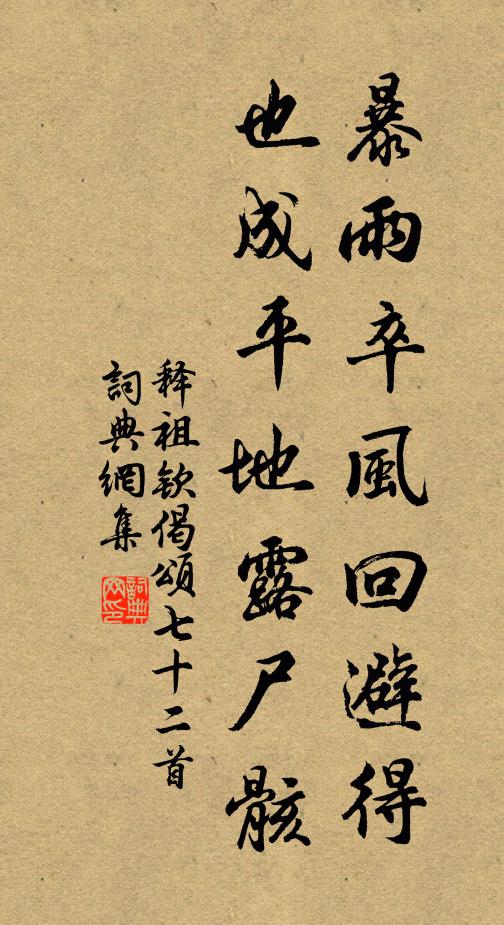 暴雨卒風回避得
也成平地露尸骸
释祖欽偈頌七十二首
詞典網集
詞典網印